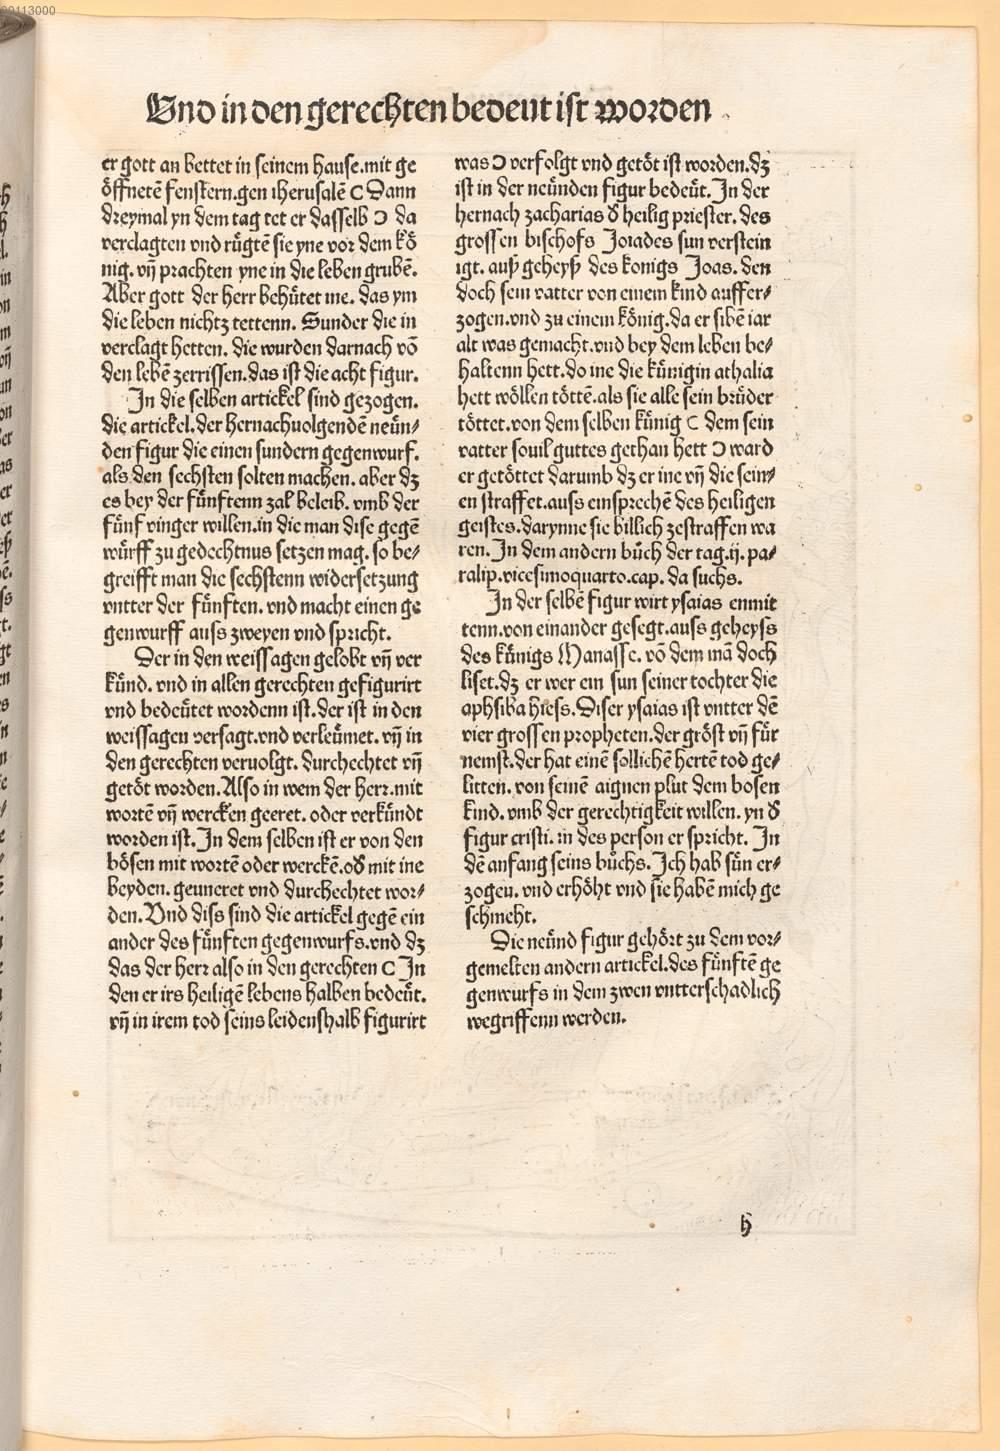 00113000
Und in den gerechten bedeut ist worden
er gott an bettet in seinem hause.mit ge
öffnetē fenstern.gen iherusalē C Dann
dreymal yn dem tag tet er dasselb Ɔ da
verclagten vnd rügtē sie yne vor dem kö
nig. vn̄ prachten yne in die leben grubē.
Aber gott der herr behütet ine. das ym
die leben nichtz tettenn. Sunder die in
verclagt hetten. die wurden darnach vō
den lebē zerrissen.das ist die acht figur.
In die selben artickel sind gezogen.
die artickel.der hernachuolgendē neün⸗
den figur die einen sundern gegenwurf.
als den sechsten solten machen. aber dz
es bey der fünftenn zal beleib. vmb der
fünf vinger willen.in die man dise gegē
würff zu gedechtnus setzen mag. so be⸗
greifft man die sechstenn widersetzung
vntter der fünften. vnd macht einen ge
genwurff auss zweyen vnd spricht.
Der in den weissagen gelobt vn̄ ver
künd. vnd in allen gerechten gefigurirt
vnd bedeütet wordenn ist.der ist in den
weissagen versagt.vnd verleümet. vn̄ in
den gerechten veruolgt. durchechtet vn̄
getöt worden.Also in wem der herr.mit
wortē vn̄ wercken geeret. oder verkündt
worden ist.In dem selben ist er von den
bösen mit wortē oder werckē.oď mit ine
beyden. geuneret vnd durchechtet wor⸗
den.Vnd diss sind die artickel gegē ein
ander des fünften gegenwurfs.vnd dz
das der herr also in den gerechten C In
den er irs heiligē lebens halben bedeüt.
vn̄ in irem tod seins leidenshalb figurirt
was Ɔ verfolgt vnd getöt ist worden.dz
ist in der neünden figur bedeüt.In der
hernach zacharias ď heilig priester. des
grossen bischofs Joiades sun verstein
igt. auß geheyß des konigs Joas. den
doch sein vatter von einem kind auffer⸗
zogen.vnd zu einem könig.da er sibē iar
alt was gemacht.vnd bey dem leben be⸗
haltenn hett.do ine die künigin athalia
hett wöllen töttē.als sie alle sein brüder
töttet.von dem selben künig C dem sein
vatter souil guttes gethan hett Ɔ ward
er getöttet darumb dz er ine vn̄ die sein⸗
en straffet.auss einsprechē des heiligen
geistes.darynne sie billich zestraffen wa
ren.In dem andern büch der tag.ij. pa⸗
ralip.vicesimoquarto.cap. da suchs.
In der selbē figur wirt ysaias enmit
tenn.von einander gesegt.auss geheyss
des künigs Manasse. vō dem mā doch
liset.dz er wer ein sun seiner tochter die
aphsiba hiess.Diser ysaias ist vntter dē
vier grossen propheten.der gröst vn̄ für
nemst.der hat einē sollichē hertē tod ge⸗
litten. von seinē aignen plut dem bosen
kind. vmb der gerechtigkeit willen. yn ď
figur cristi. in des person er spricht. In
dē anfang seins büchs.Ich hab sün er⸗
zogen. vnd erhöht vnd sie habē mich ge
schmeht.
Die neünd figur gehört zu dem vor⸗
gemelten andern artickel.des fünftē ge
genwurfs in dem zwen vntterschadlich
wegriffenn werden.
h